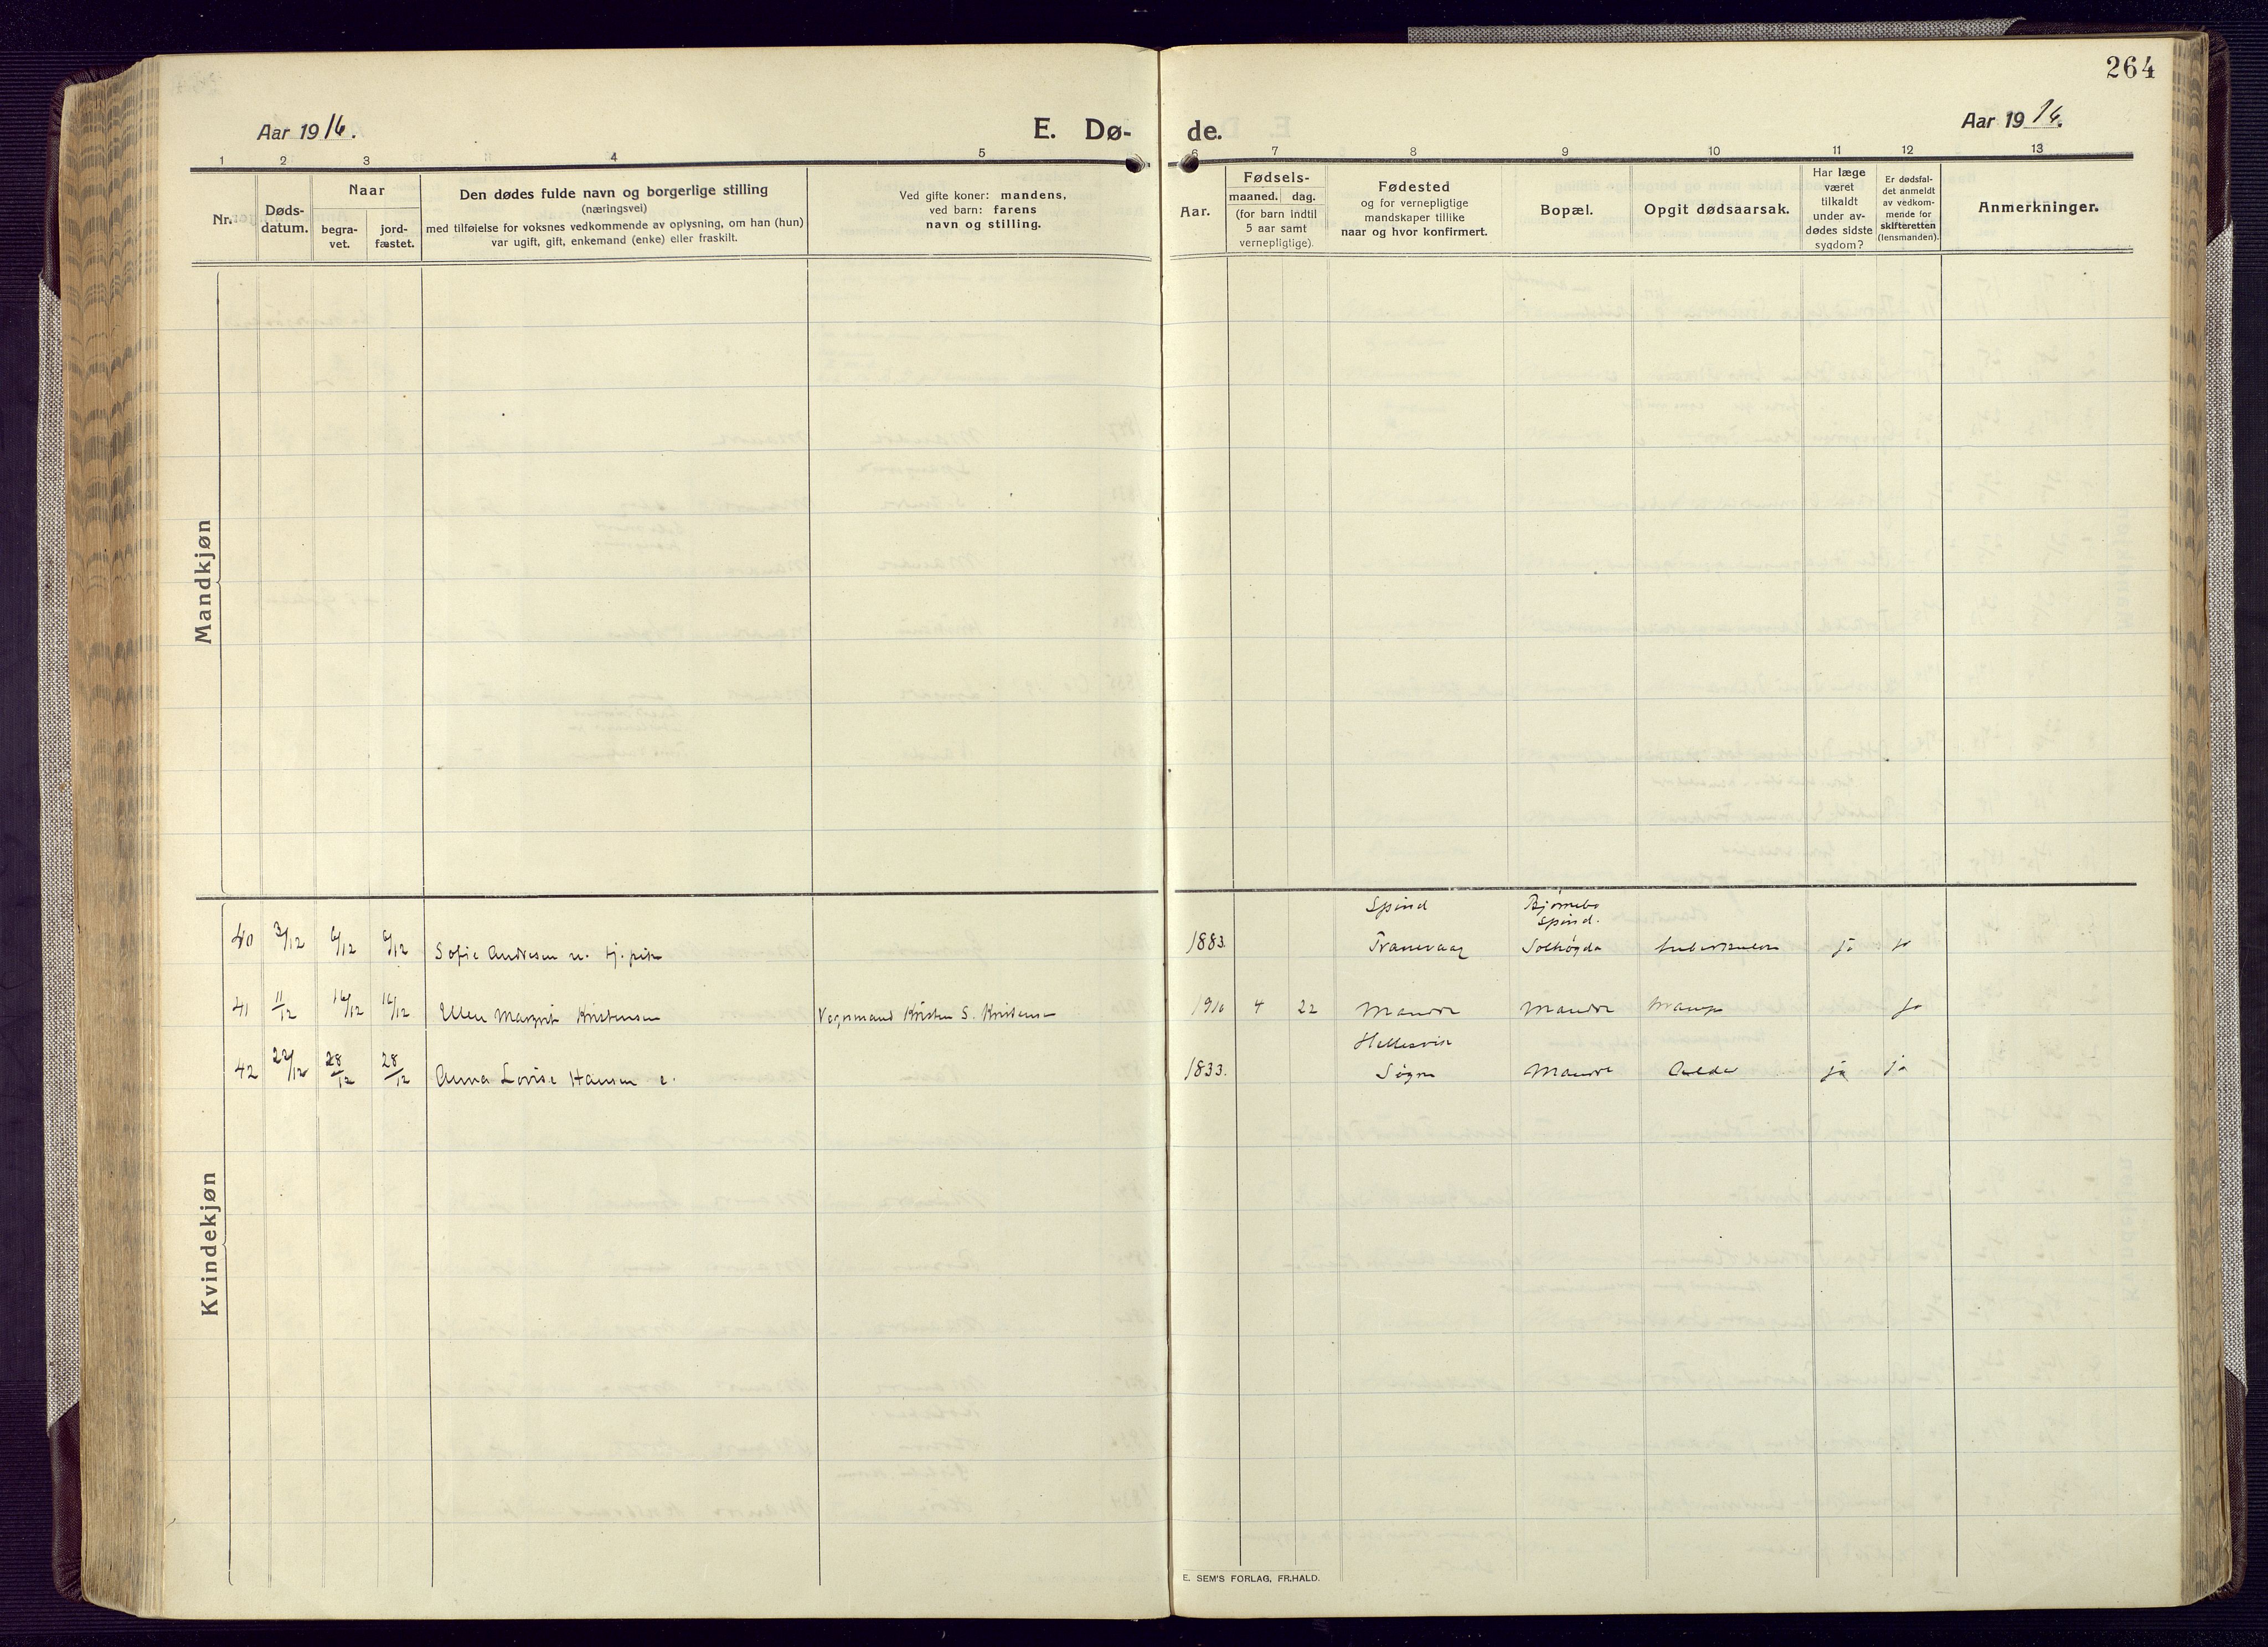 264
Aar 1916.
E. Dø-
de.
Aar 1916.
1 2 3 4 5 6 7 8 9 10 11 12 13
Nr.
Døds-
datum.
Naar
begra-
vet.
jord-
fæstet.
Den dødes fulde navn og borgerlige stilling
(næringsvei)
med tilføielse for voksnes vedkommende av oplysning, om han (hun)
var ugift, gift, enkemand (enke) eller fraskilt.
Ved gifte koner: mandens,
ved barn: farens
navn og stilling.
Aar.
Fødsels-
maaned. dag.
(for barn indtil
5 aar samt
vernepligtige).
Fødested
og for vernepligtige
mandskaper tillike
naar og hvor konfirmert.
Bopæl.
Opgit dødsaarsak.
Har læge
været
tilkaldt
under av-
dødes sidste
sygdom?
Er dødsfal-
det anmeldt
av vedkom-
mende for
skifteretten
(lensmanden).
Anmerkninger.
Mandkjøn
Kvindekjøn
Spind Bjørnebo
Spind.
40 3/12 6/12 6/12 Sofie Andresen u. tj. pike 1883. Tranevaag Solhøgda tuberkulose ja ja
41 11/12 16/12 16/12 Ellen Margrit Kristensen Vognmand Kristen S. Kristensen 1916 4 22 Mandal Mandal krampe ja
Hellesvik
42 22/12 28/12 28/12 Anna Lovise Hansen e. 1833. Søgne Mandal Ælde ja ja
E. SEM'S FORLAG, FR.HALD.